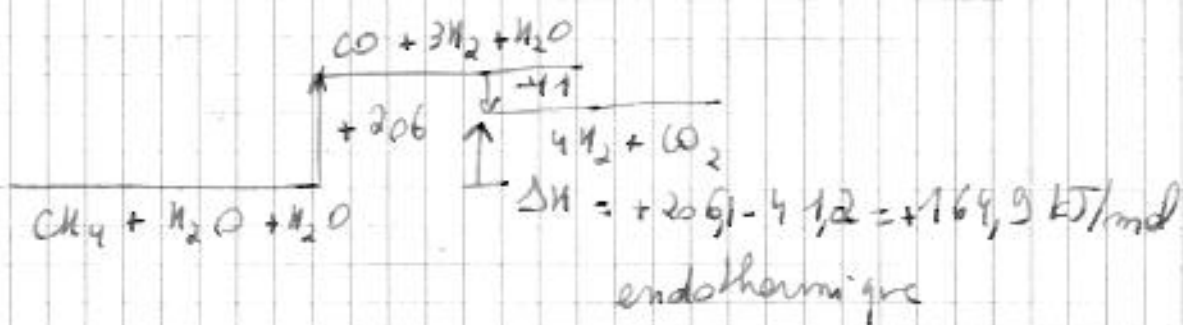 CO + 3H₂ + H₂O
-41
+ 206
4H₂ + CO₂
CH₄ + H₂O + H₂O
ΔH = +206,1 - 41,2 = +164,9 kJ/mol
endothermique